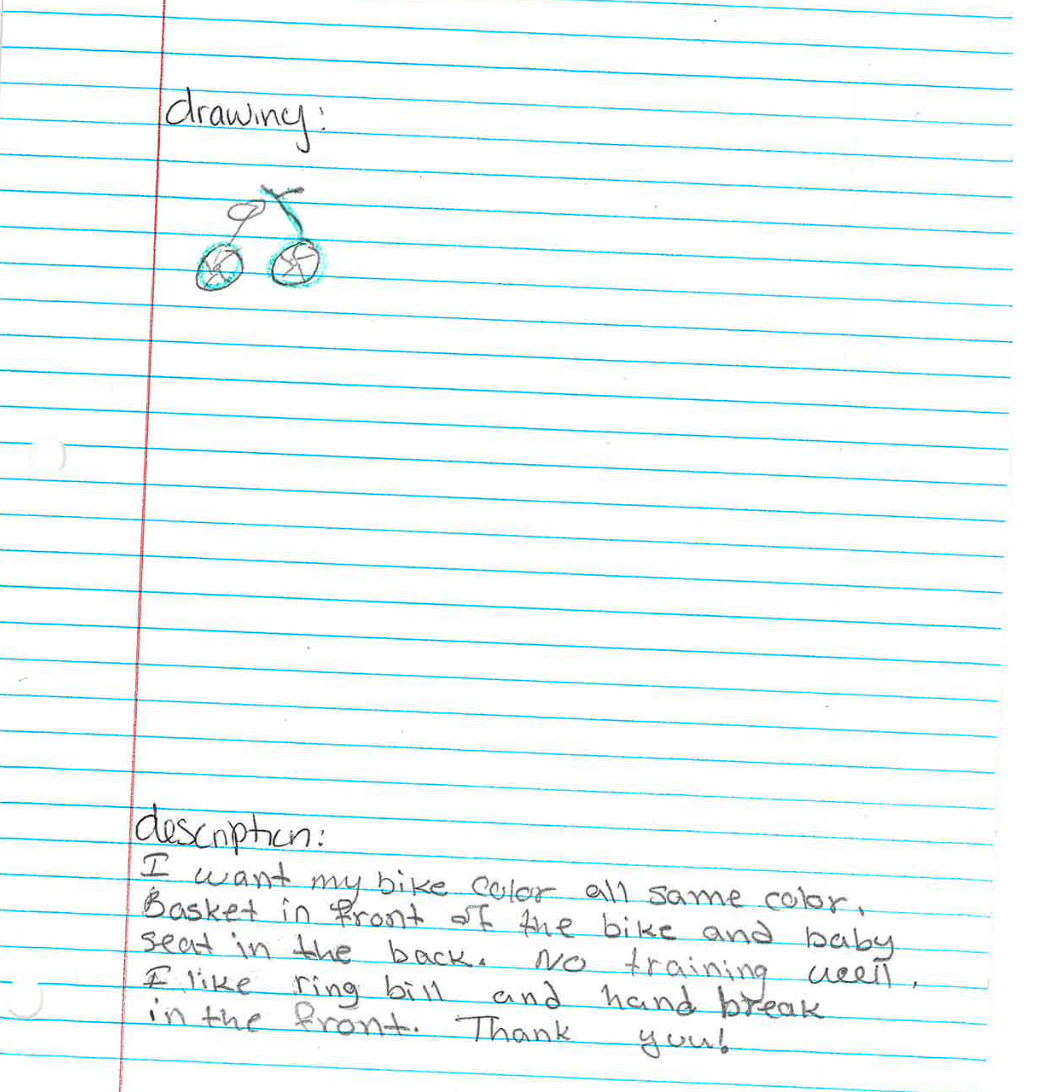 drawing:
description:
I want my bike color all same color.
Basket in front of the bike and baby
seat in the back. No training weell.
I like ring bill and hand break
in the front. Thank you!